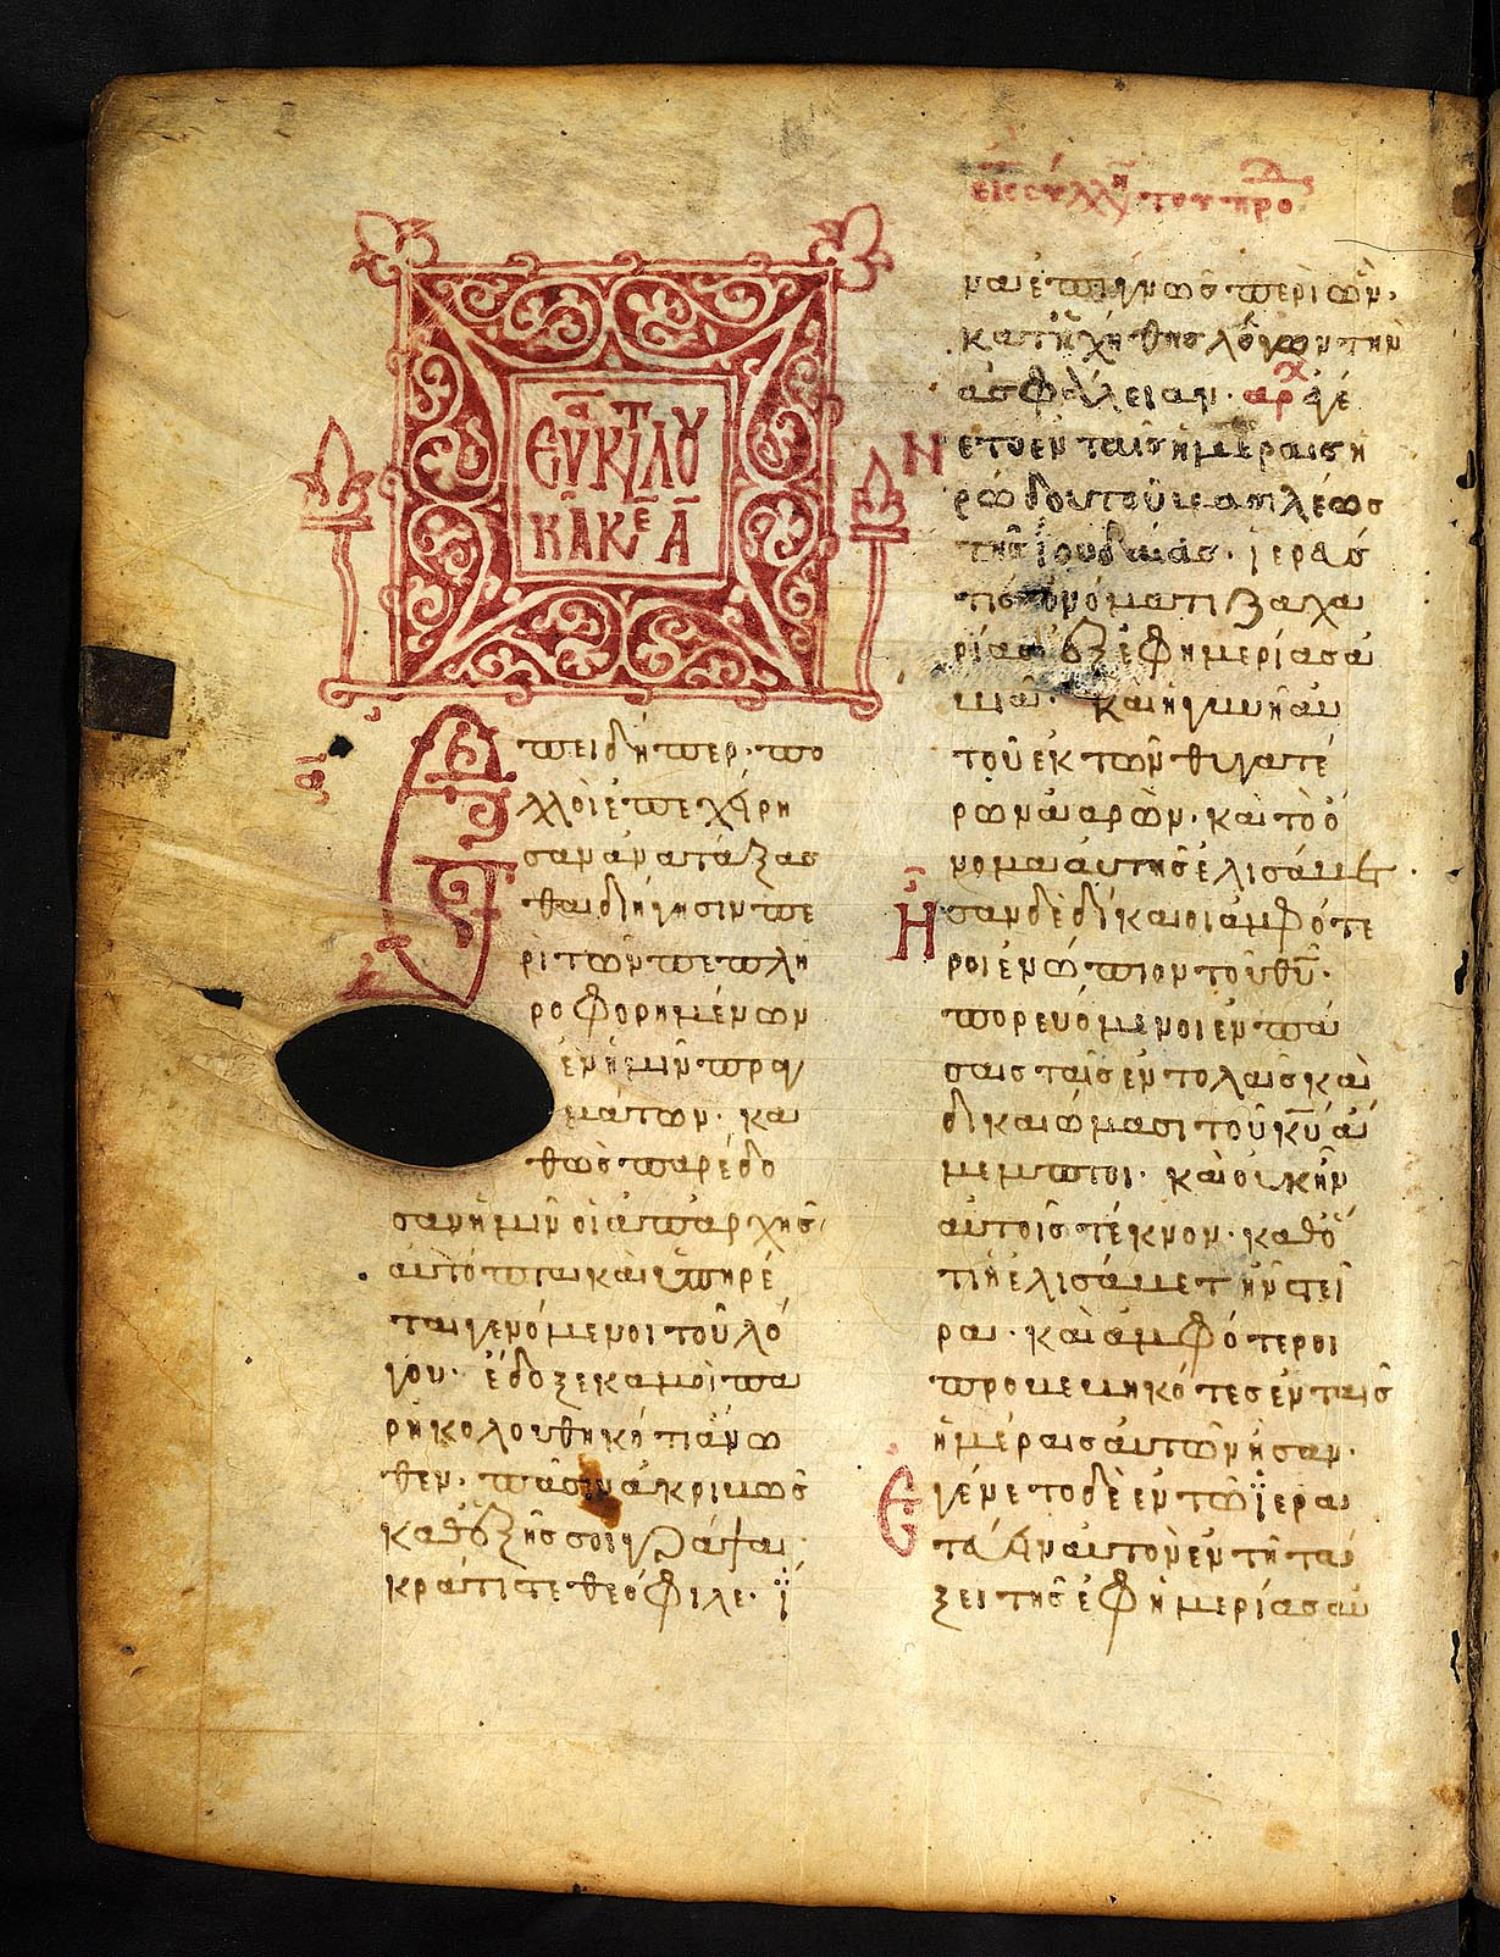 εἰς σύλλη τοῦ προδ
ΕΥΚΤΛΟΥ
Κ ΛΚ Ε Α
Ἐπειδήπερ· πο
λλοὶ ἐπεχείρη
σαν ἀνατάξας
θαι διήγησιν πε
ρὶ τῶν πεπλη
ροφορημένων
ἐν ἡμῖν πραγ
μάτων· κα
θὼς παρέδο
σαν ἡμῖν οἱ ἀπαρχῆς
αὐτόπται καὶ ὑπηρέ
ται γενόμενοι τοῦ λό
γου· ἔδοξε καμοὶ πα
ρηκολουθηκότι ἄνω
θεν· πᾶσιν ἀκριβῶς
καθεξῆς σοι γράψαι·
κράτιτε θεόφιλε· ἵ
ναι ἐπιγνῶς περὶ ὧν·
κατηχήθης λόγων τὴν
ἀσφάλειαν· αρχ γέ
Ν ετο ἐν ταῖς ἡμέραις ἡ
ρώδου τοῦ βασιλέως
τῆς ἰουδαίας· ἱερεύς
τις ὀνόματι ζαχα
ρίας ἐξ ἐφημερίας ἀ
βιά· καὶ ἡ γυνὴ αὐ
τοῦ ἐκ τῶν θυγατέ
ρων ἀαρών· καὶ τὸ ὄ
νομα αὐτῆς ἐλισάβετ·
Ἦσαν δὲ δίκαιοι ἀμφότε
ροι ἐνώπιον τοῦ θυ̅·
πορευόμενοι ἐν πά
σαις ταῖς ἐντολαῖς καὶ
δικαιώμασι τοῦ κυ̅ ἄ
μεμπτοι· καὶ οὐκ ἦν
αὐτοῖς τέκνον· καθό
τι ἡ ἐλισάβετ ἦν στεῖ
ρα· καὶ ἀμφότεροι
προβεβηκότες ἐν ταῖς
ἡμέραις αὐτῶν ἦσαν·
Ἐγένετο δὲ ἐν τῶ ἱερα
τεύειν αὐτὸν ἐν τῆ τά
ξει τῆς ἐφημερίας αὐ